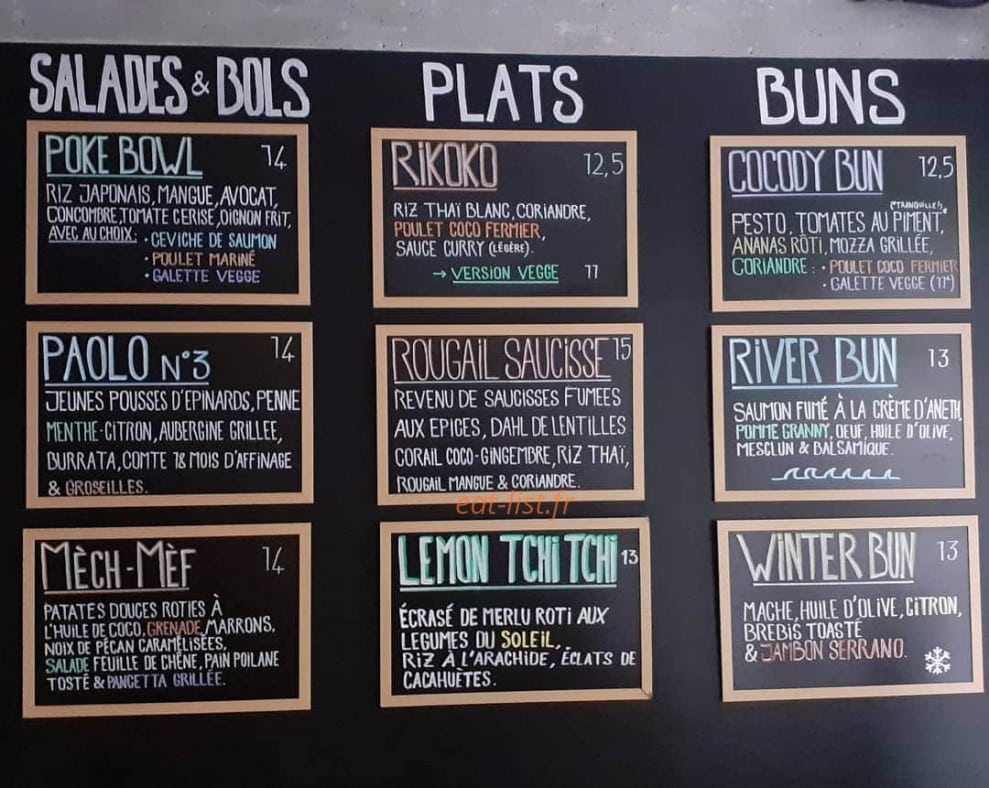 SALADES & BOLS
POKE BOWL 14
RIZ JAPONAIS, MANGUE, AVOCAT,
CONCOMBRE, TOMATE CERISE, OIGNON FRIT,
AVEC AU CHOIX: • CEVICHE DE SAUMON
• POULET MARINÉ
• GALETTE VEGGE
PAOLO N°3 14
JEUNES POUSSES D'EPINARDS, PENNE
MENTHE-CITRON, AUBERGINE GRILLEE,
BURRATA, COMTE 18 MOIS D'AFFINAGE
& GROSEILLES.
MÈCH-MÈF 14
PATATES DOUCES ROTIES À
L'HUILE DE COCO, GRENADE, MARRONS,
NOIX DE PÉCAN CARAMÉLISÉES,
SALADE FEUILLE DE CHÊNE, PAIN POILANE
TOSTÉ & PANCETTA GRILLÉE.
PLATS
RIKOKO 12,5
RIZ THAÏ BLANC, CORIANDRE,
POULET COCO FERMIER,
SAUCE CURRY (LÉGÈRE).
→ VERSION VEGGE 11
ROUGAIL SAUCISSE 15
REVENU DE SAUCISSES FUMEES
AUX EPICES, DAHL DE LENTILLES
CORAIL COCO-GINGEMBRE, RIZ THAÏ,
ROUGAIL MANGUE & CORIANDRE.
eat-list.fr
LEMON TCHI TCHI 13
ÉCRASÉ DE MERLU ROTI AUX
LEGUMES DU SOLEIL,
RIZ À L'ARACHIDE, ÉCLATS DE
CACAHUÈTES.
BUNS
COCODY BUN 12,5
("TRANQUILLE!)
PESTO, TOMATES AU PIMENT,
ANANAS RÔTI, MOZZA GRILLÉE,
CORIANDRE : • POULET COCO FERMIER
• GALETTE VEGGE (11€)
RIVER BUN 13
SAUMON FUMÉ À LA CRÈME D'ANETH,
POMME GRANNY, OEUF, HUILE D'OLIVE,
MESCLUN & BALSAMIQUE.
WINTER BUN 13
MACHE, HUILE D'OLIVE, CITRON,
BREBIS TOASTÉ
& JAMBON SERRANO.